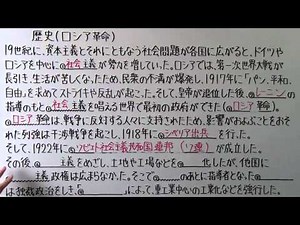 歴史(ロシア革命)
19世紀に、資本主義とそれにともなう社会問題が各国に広がると、ドイツや
ロシアを中心に①社会主義が勢力を増していた。ロシアでは、第一次世界大戦が
長引き、生活が苦しくなったため、民衆の不満が爆発し、1917年に「パン、平和、
自由」を求めてストライキや反乱が起こった。そして、皇帝が退位した後、②レーニンの
指導のもと③社会主義を唱える世界で最初の政府ができた(④ロシア革命)。
④ロシア革命は戦争に反対する人々に支持されたため、影響がおよぶことをおそ
れた列強は干渉戦争を起こし、1918年に⑤シベリア出兵を行った。
そして、1922年に⑥ソビエト社会主義共和国連邦(ソ連)が成立した。
その後、主義をめざし、土地や工場などを化したが、他国に
主義政権は広まらなかった。そこでのあとに指導者となった
は独裁政治をしき、「」によって、重工業中心の工業化などを強行した。